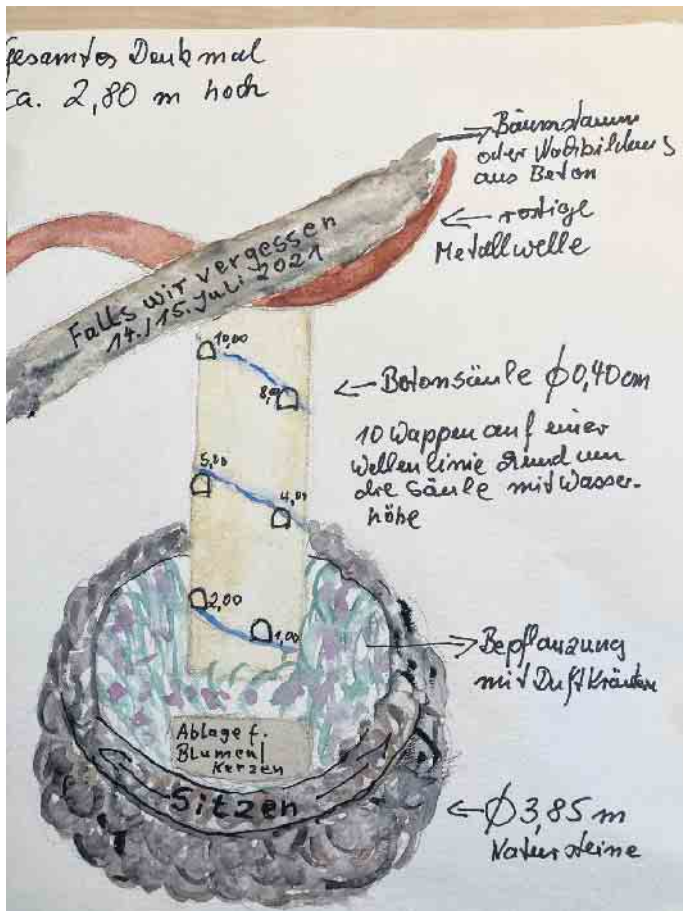 Gesamtes Denkmal
ca. 2,80 m hoch
Baumstamm
oder Nachbildung
aus Beton
rostige
Metallwelle
Falls wir vergessen
14./15. Juli 2021
10,00
8,00
Betonsäule ϕ 0,40 cm
10 Wappen auf einer
Wellenlinie rund um
die Säule mit Wasser-
höhe
5,00
4,00
2,00
1,00
Bepflanzung
mit Duftkräutern
Ablage f.
Blumen/
Kerzen
Sitzen
ϕ 3,85 m
Natursteine